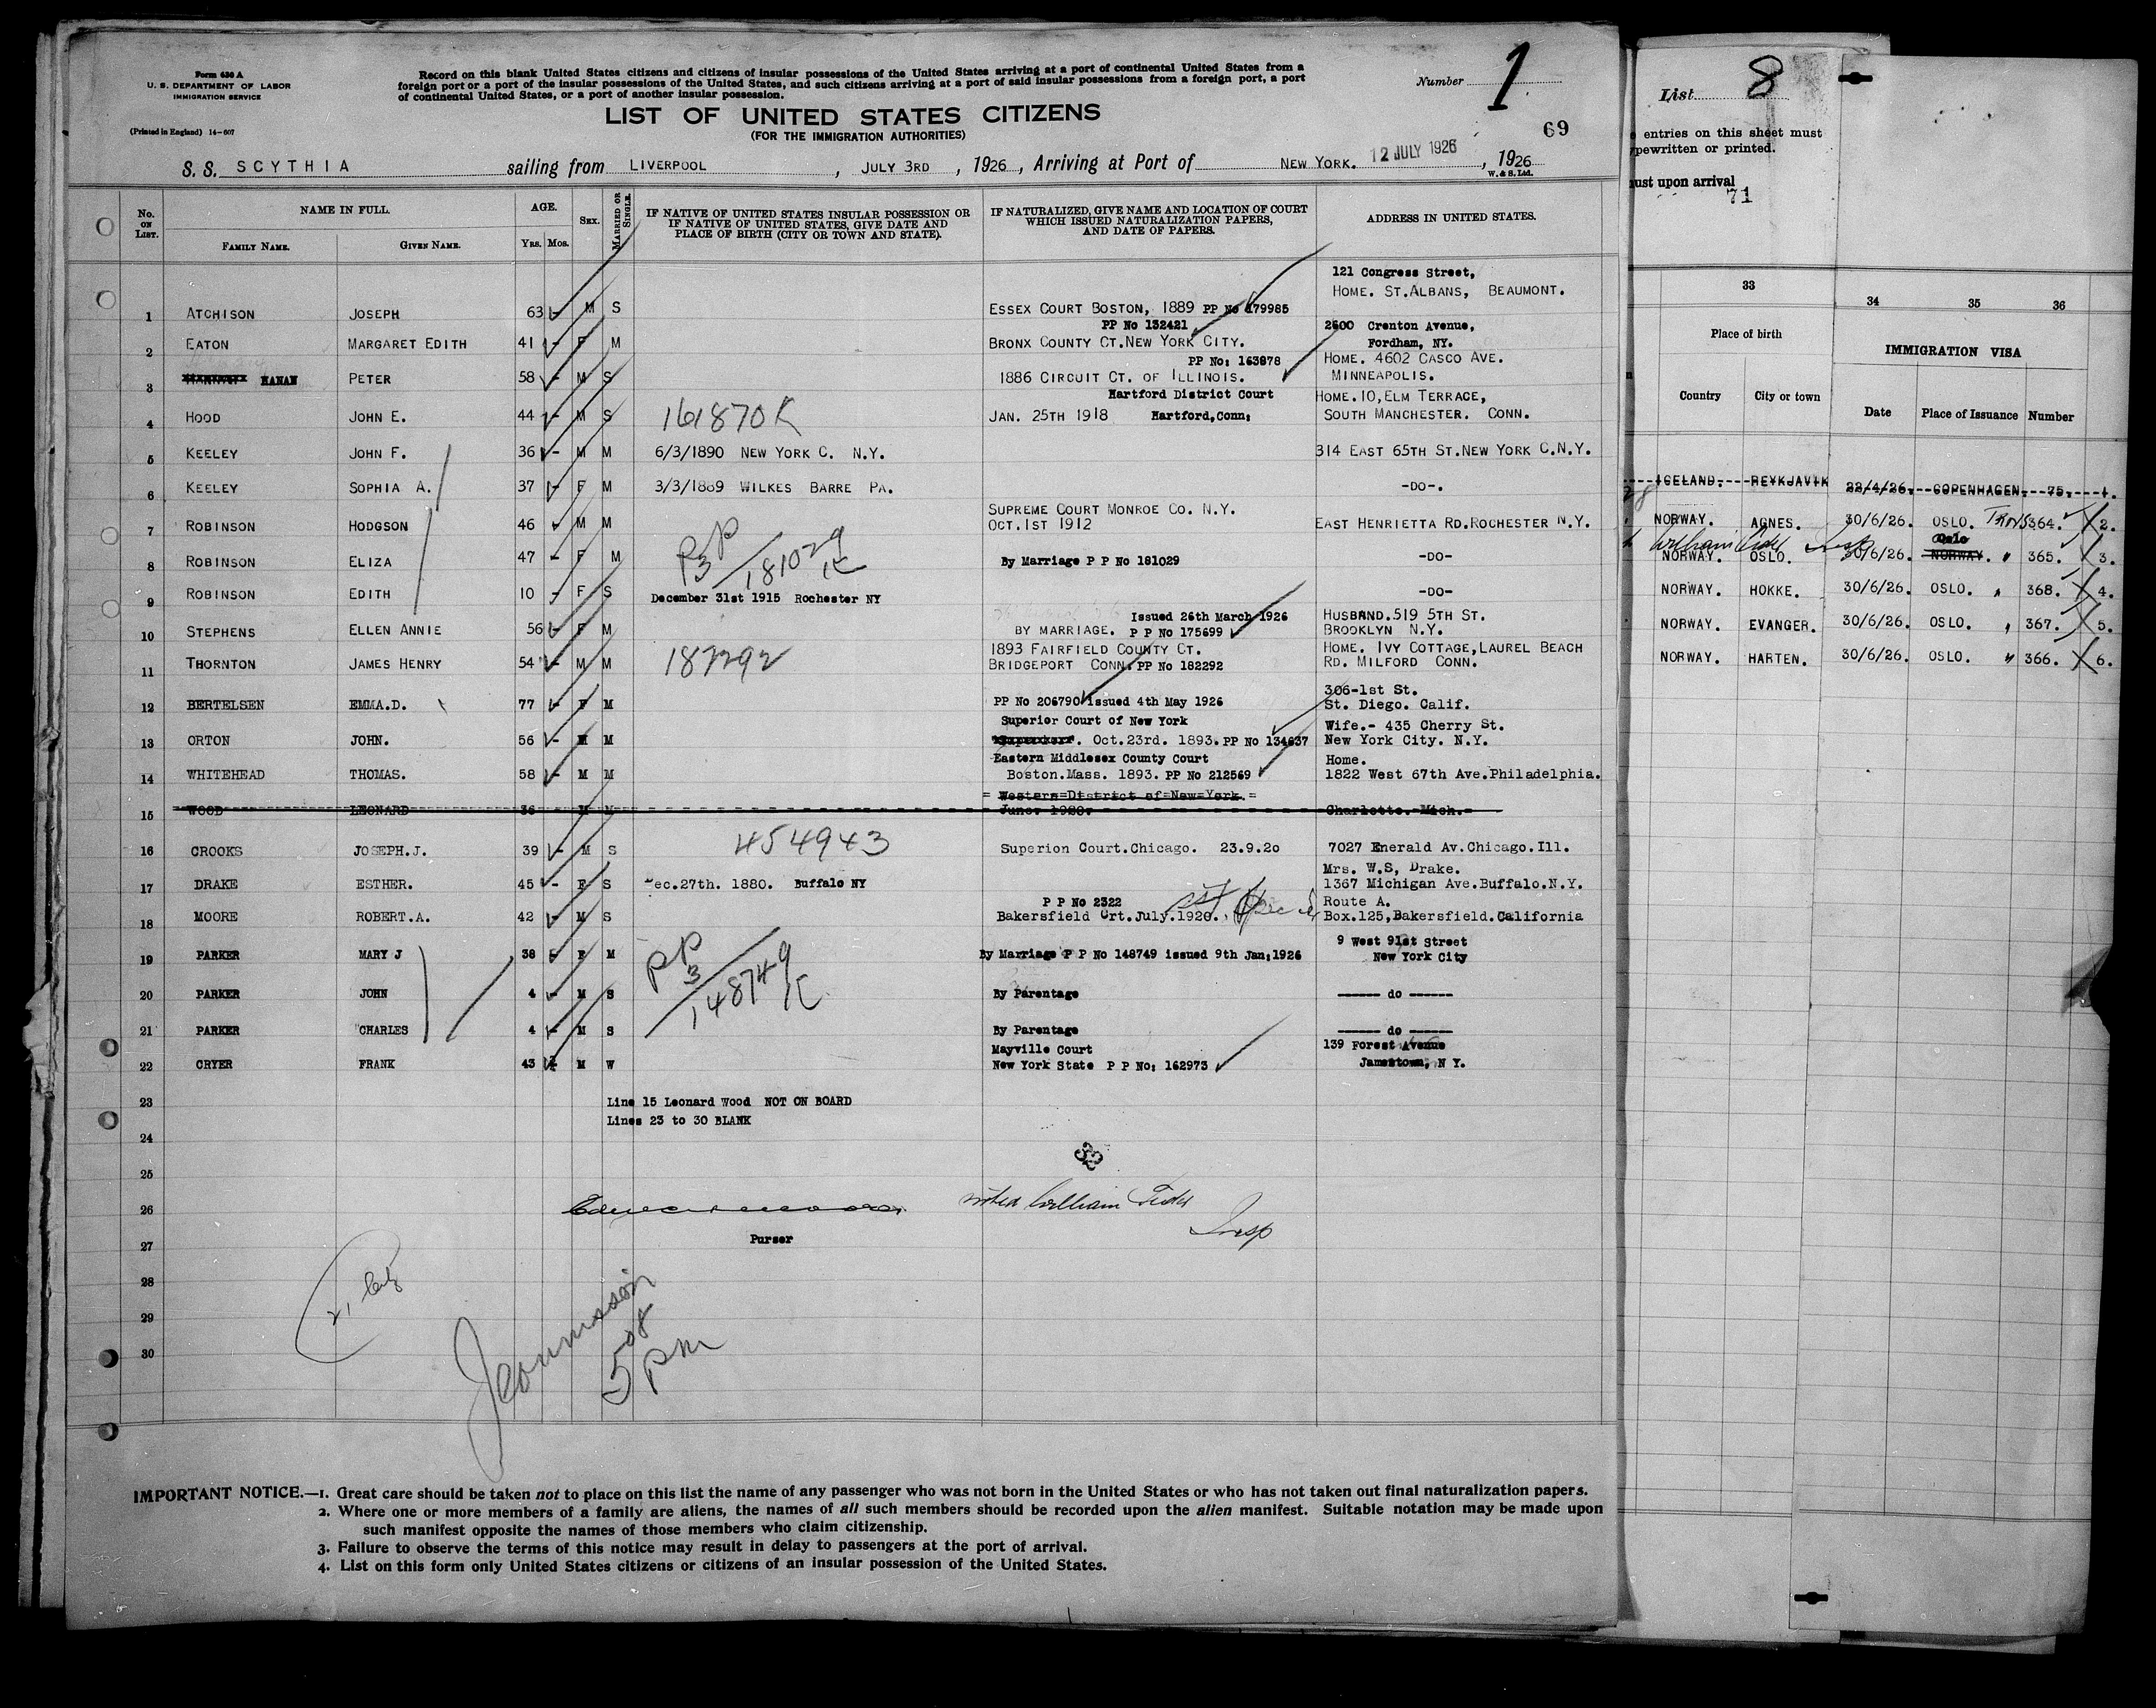 Form 630 A
U. S. DEPARTMENT OF LABOR
IMMIGRATION SERVICE
(Printed in England) 14-607
Record on this blank United States citizens and citizens of insular possessions of the United States arriving at a port of continental United States from a
foreign port or a port of the insular possessions of the United States, and such citizens arriving at a port of said insular possessions from a foreign port, a port
of continental United States, or a port of another insular possession.
Number 1
LIST OF UNITED STATES CITIZENS
(FOR THE IMMIGRATION AUTHORITIES)
69
S. S. SCYTHIA sailing from LIVERPOOL, JULY 3RD, 1926, Arriving at Port of NEW YORK. 12 JULY 1926, 1926
W. & S. Ltd.
No. ON LIST.
NAME IN FULL.
FAMILY NAME. GIVEN NAME.
AGE.
YRS. MOS.
SEX.
MARRIED OR SINGLE.
IF NATIVE OF UNITED STATES INSULAR POSSESSION OR
IF NATIVE OF UNITED STATES, GIVE DATE AND
PLACE OF BIRTH (CITY OR TOWN AND STATE).
IF NATURALIZED, GIVE NAME AND LOCATION OF COURT
WHICH ISSUED NATURALIZATION PAPERS,
AND DATE OF PAPERS.
ADDRESS IN UNITED STATES.
121 Congress Street,
HOME. ST.ALBANS, BEAUMONT.
1 ATCHISON JOSEPH 63 - M S ESSEX COURT BOSTON, 1889 PP No 179985
PP No 132421 2600 Crenton Avenue,
2 EATON MARGARET EDITH 41 - F M BRONX COUNTY CT.NEW YORK CITY. Fordham, NY.
PP No: 163878 HOME. 4602 CASCO AVE.
3 HANAN PETER 58 - M S 1886 CIRCUIT CT. OF ILLINOIS. MINNEAPOLIS.
Hartford District Court HOME.10,ELM TERRACE,
4 HOOD JOHN E. 44 - M S 161870K JAN. 25TH 1918 Hartford,Conn: SOUTH MANCHESTER. CONN.
5 KEELEY JOHN F. 36 - M M 6/3/1890 NEW YORK C. N.Y. 314 EAST 65TH ST.NEW YORK C.N.Y.
6 KEELEY SOPHIA A. 37 - F M 3/3/1889 WILKES BARRE PA. -DO-.
SUPREME COURT MONROE CO. N.Y.
7 ROBINSON HODGSON 46 - M M OCT.1ST 1912 EAST HENRIETTA RD.ROCHESTER N.Y.
PP 3 / 181029 K
8 ROBINSON ELIZA 47 - F M By Marriage P P No 181029 -DO-
9 ROBINSON EDITH 10 - F S December 31st 1915 Rochester NY -DO-
Issued 26th March 1926 HUSBAND.519 5TH ST.
10 STEPHENS ELLEN ANNIE 56 - F M BY MARRIAGE. P P No 175699 BROOKLYN N.Y.
1893 FAIRFIELD COUNTY CT. HOME. IVY COTTAGE,LAUREL BEACH
11 THORNTON JAMES HENRY 54 - M M 182292 BRIDGEPORT CONN. PP No 182292 RD. MILFORD CONN.
306-1st St.
12 BERTELSEN EMMA.D. 77 - F M PP No 206790 issued 4th May 1926 St. Diego. Calif.
Superior Court of New York Wife.- 435 Cherry St.
13 ORTON JOHN. 56 - M M Oct.23rd. 1893. PP No 134637 New York City. N.Y.
Eastern Middlesex County Court Home.
14 WHITEHEAD THOMAS. 58 - M M Boston.Mass. 1893. PP No 212569 1822 West 67th Ave.Philadelphia.
Western District of New York.
15 WOOD LEONARD 36 M M June. 1920. Charlotte. Mich.
16 CROOKS JOSEPH.J. 39 - M S 454943 Superion Court.Chicago. 23.9.20 7027 Enerald Av.Chicago.Ill.
Mrs. W.S, Drake.
17 DRAKE ESTHER. 45 - F S ec.27th. 1880. Buffalo NY 1367 Michigan Ave.Buffalo.N.Y.
P P No 2322 Route A.
18 MOORE ROBERT.A. 42 - M S Bakersfield Crt.July.1920. Box.125,Bakersfield.California
9 West 91st Street
19 PARKER MARY J 38 - F M By Marriage P P No 148749 issued 9th Jan:1926 New York City
PP 3 / 148749 K
20 PARKER JOHN 4 - M S By Parentage do
21 PARKER CHARLES 4 - M S By Parentage do
Mayville Court 139 Forest Avenue
22 CRYER FRANK 43 - M W New York State P P No: 162973 Jamestown, N Y.
23 Line 15 Leonard Wood NOT ON BOARD
Lines 23 to 30 BLANK
24
25
26 William Insp
27 Purser
28
29
30
5 pm
IMPORTANT NOTICE.—1. Great care should be taken not to place on this list the name of any passenger who was not born in the United States or who has not taken out final naturalization papers.
2. Where one or more members of a family are aliens, the names of all such members should be recorded upon the alien manifest. Suitable notation may be made upon
such manifest opposite the names of those members who claim citizenship.
3. Failure to observe the terms of this notice may result in delay to passengers at the port of arrival.
4. List on this form only United States citizens or citizens of an insular possession of the United States.
List 8
entries on this sheet must
pewritten or printed.
ust upon arrival
71
33 34 35 36
Place of birth
IMMIGRATION VISA
Country City or town Date Place of Issuance Number
ICELAND. REYKJAVIK 22/4/26. COPENHAGEN. 75. 1.
NORWAY. AGNES. 30/6/26. OSLO. 364. 2.
Oslo
NORWAY. OSLO. 30/6/26. NORWAY. " 365. 3.
NORWAY. HOKKE. 30/6/26. OSLO. " 368. 4.
NORWAY. EVANGER. 30/6/26. OSLO. " 367. 5.
NORWAY. HARTEN. 30/6/26. OSLO. " 366. 6.